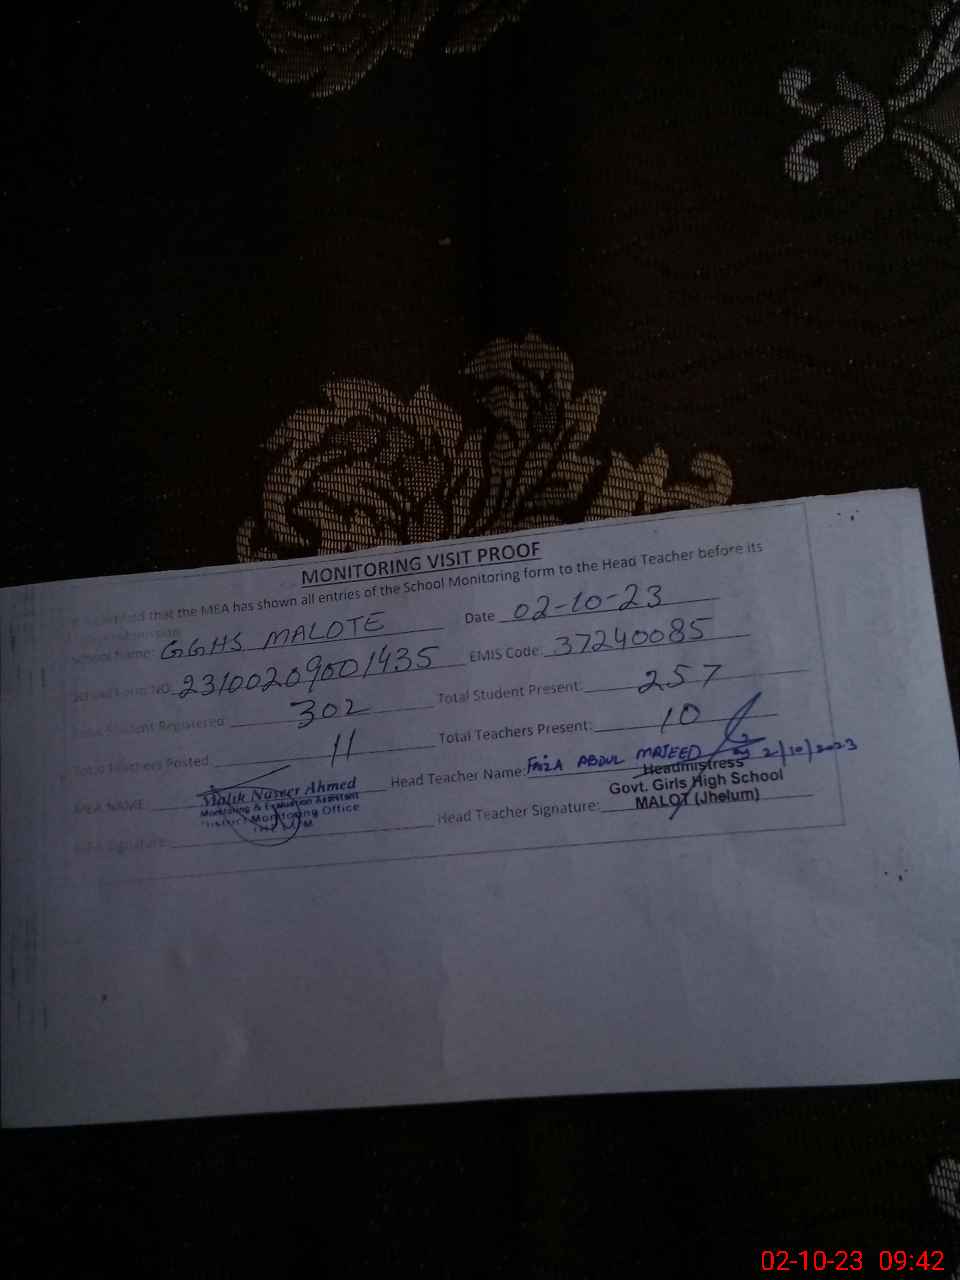 MONITORING VISIT PROOF
that the MEA has shown all entries of the School Monitoring form to the Head Teacher before its
School Name: GGHS MALOTE Date 02-10-23
NO. 23100209001435 EMIS Code: 37240085
Student Registered: 302 Total Student Present: 257
Total Teachers Posted: 11 Total Teachers Present: 10
MEA NAME: Malik Naseer Ahmed Head Teacher Name: FAIZA ABDUL MAJEED 2/10/2023
Monitoring & Evaluation Assistant
District Monitoring Office
Headmistress
Govt. Girls High School
MALOT (Jhelum)
Signature: Head Teacher Signature:
02-10-23 09:42